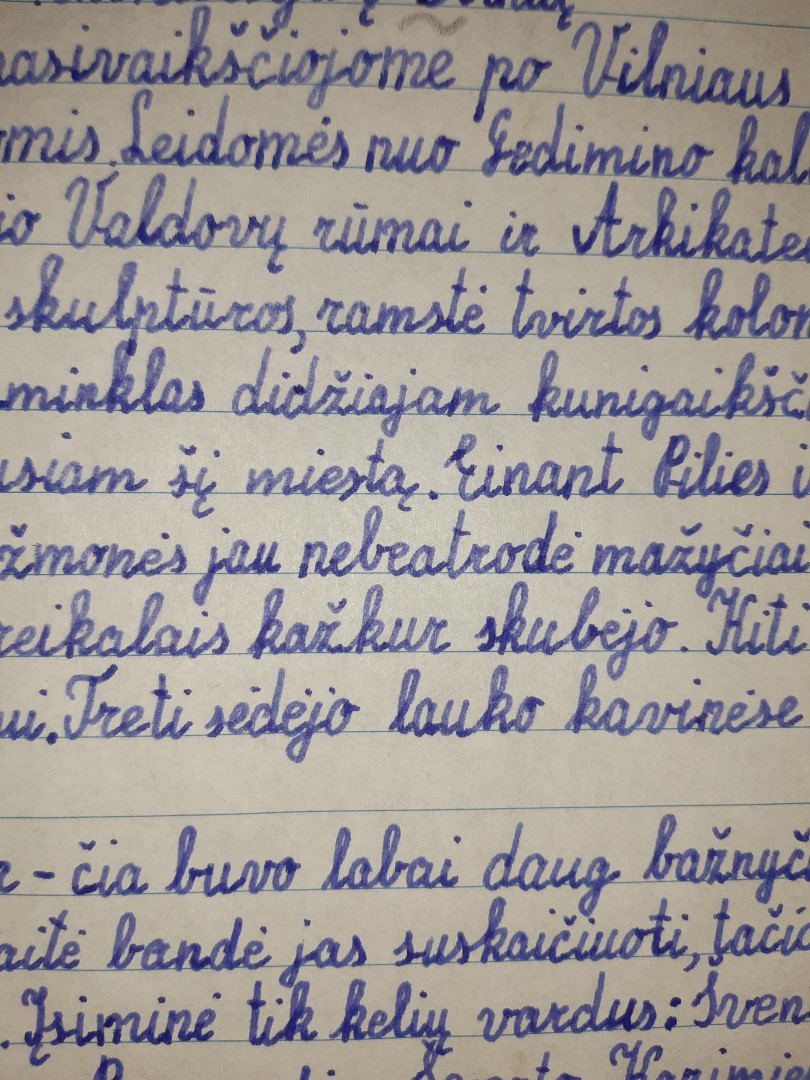 pasivaikščiojome po Vilniaus
omis. Leidomės nuo Gedimino kal
io Valdovų rūmai ir Arkikated
skulptūros, ramstė tvirtos kolon
minklas didžiajam kunigaikšč
usiam šį miestą. Einant Pilies
žmonės jau nebeatrodė mažyčiai
reikalais kažkur skubėjo. Kiti
ui. Treti sėdėjo lauko kavinėse
r - čia buvo labai daug bažnyč
aitė bandė jas suskaičiuoti, tači
. Įsiminė tik kelių vardus: Šven
Švento Kazimie